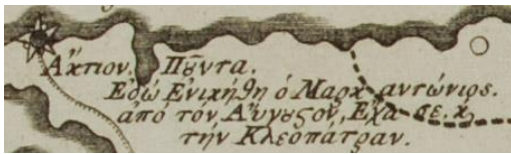 Ἄκτιον. Πȣ̃ντα.
Εδώ Ενικήθη ὁ Μαρκ αντώνιος.
από τόν Αύγȣςον, Εχασε κ,
τήν Κλεοπάτραν.